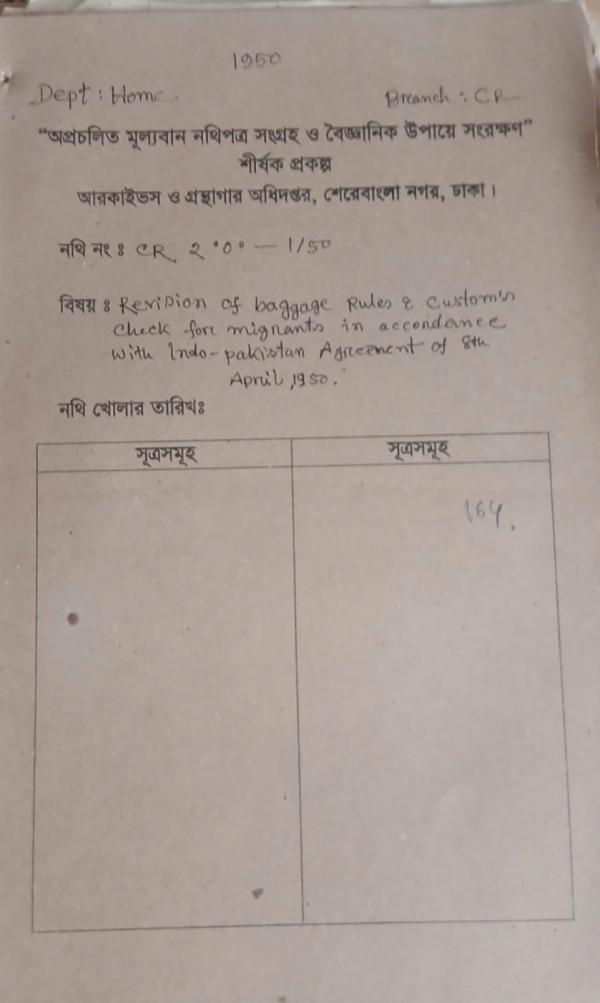 1950
Dept: Home. Breanch: CR
"অপ্রচলিত মূল্যবান নথিপত্র সংগ্রহ ও বৈজ্ঞানিক উপায়ে সংরক্ষণ"
শীর্ষক প্রকল্প
আরকাইভস ও গ্রন্থাগার অধিদপ্তর, শেরেবাংলা নগর, ঢাকা।
নথি নং ঃ CR 2 "0" — 1/50
বিষয় ঃ Revision of baggage Rules & Custom's
Check fore migrants in accondance
with Indo-pakistan Agreement of 8th
April, 1950.
নথি খোলার তারিখঃ
সূত্রসমূহ সূত্রসমূহ
164.